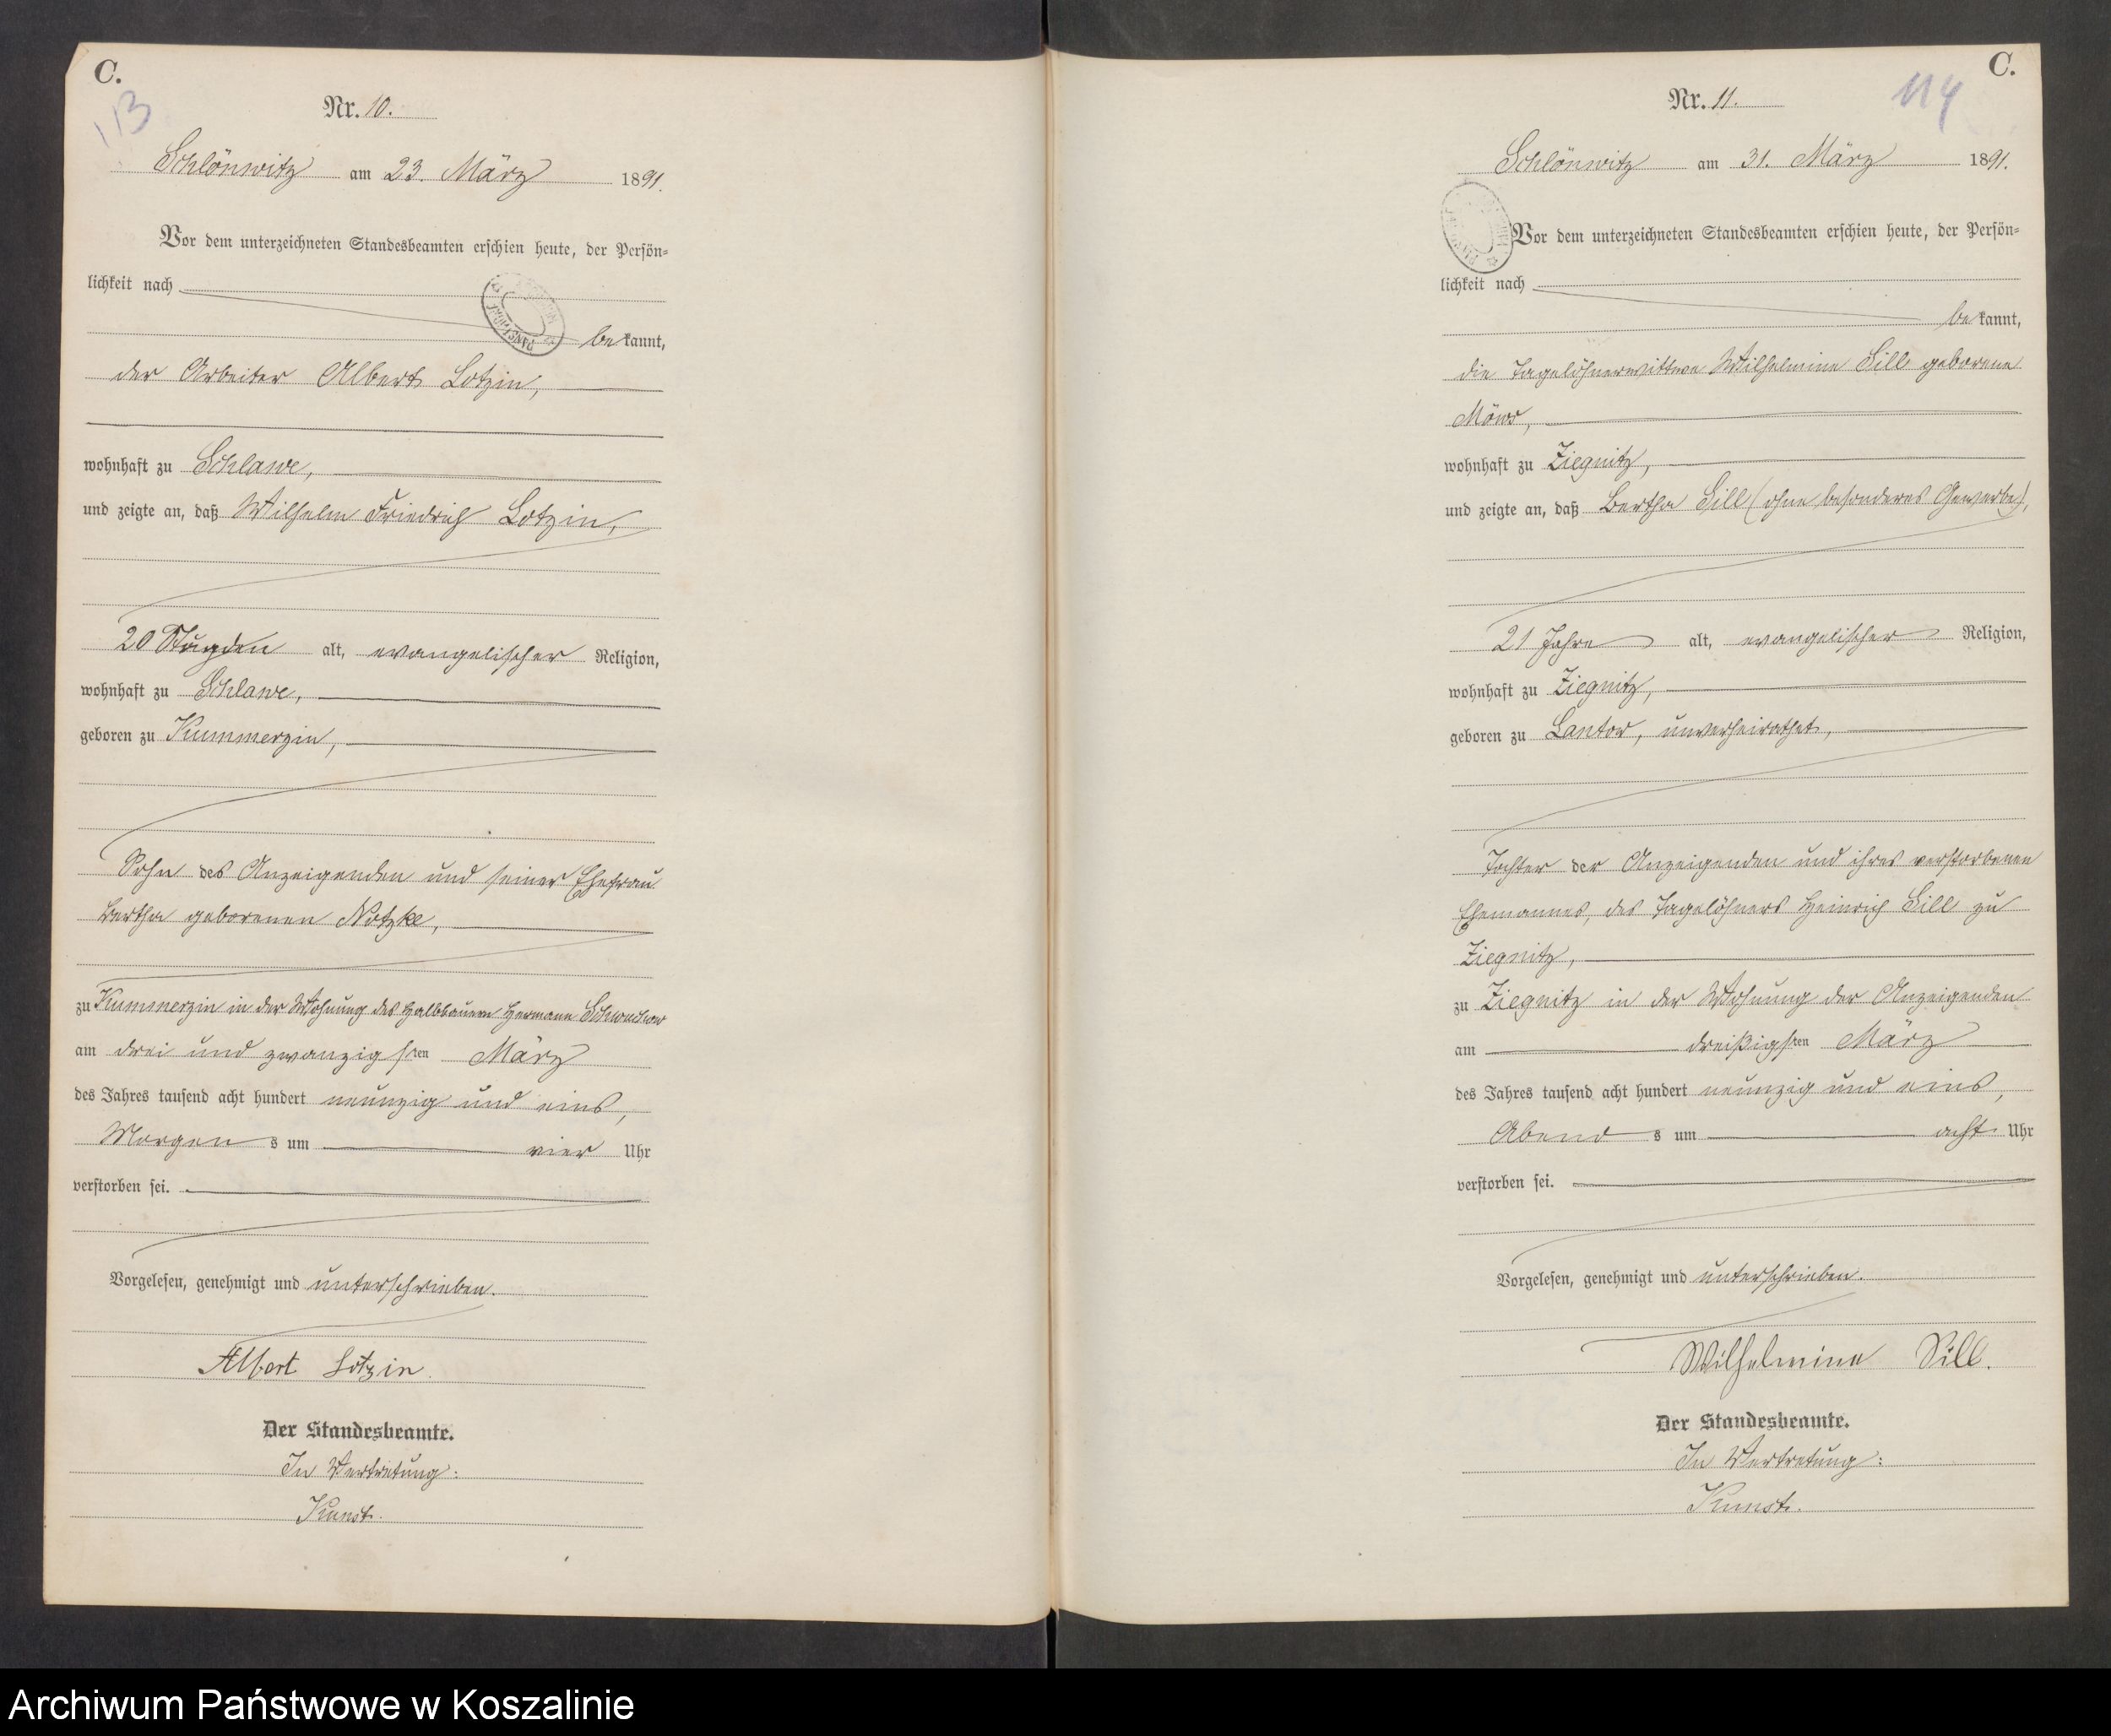 C.
113
Nr. 10.
Schlönwitz am 23. März 1891.
Vor dem unterzeichneten Standesbeamten erschien heute, der Persön-
lichkeit nach
be kannt,
der Arbeiter Albert Lotzin,
wohnhaft zu Schlawe,
und zeigte an, daß Wilhelm Friedrich Lotzin,
20 Stunden alt, evangelischer Religion,
wohnhaft zu Schlawe,
geboren zu Kummerzin,
Sohn des Anzeigenden und seiner Ehefrau
Bertha geborenen Notzke,
zu Kummerzin in der Wohnung des Halbbauern Hermann Schwuchow
am drei und zwanzigsten März
des Jahres tausend acht hundert neunzig und eins,
Morgens um vier Uhr
verstorben sei.
Vorgelesen, genehmigt und unterschrieben.
Albert Lotzin.
Der Standesbeamte.
In Vertretung:
Kunst.
C.
114
Nr. 11.
Schlönwitz am 31. März 1891.
Vor dem unterzeichneten Standesbeamten erschien heute, der Persön-
lichkeit nach
be kannt,
die Tagelöhnerwittwe Wilhelmine Sill geborene
Möws,
wohnhaft zu Ziegnitz,
und zeigte an, daß Bertha Sill (ohne besonderes Gewerbe),
21 Jahre alt, evangelischer Religion,
wohnhaft zu Ziegnitz,
geboren zu Lantow, unverheirathet,
Tochter der Anzeigenden und ihres verstorbenen
Ehemannes, des Tagelöhners Heinrich Sill zu
Ziegnitz,
zu Ziegnitz in der Wohnung der Anzeigenden
am dreißigsten März
des Jahres tausend acht hundert neunzig und eins,
Abends um acht Uhr
verstorben sei.
Vorgelesen, genehmigt und unterschrieben.
Wilhelmine Sill.
Der Standesbeamte.
In Vertretung:
Kunst.
Archiwum Państwowe w Koszalinie